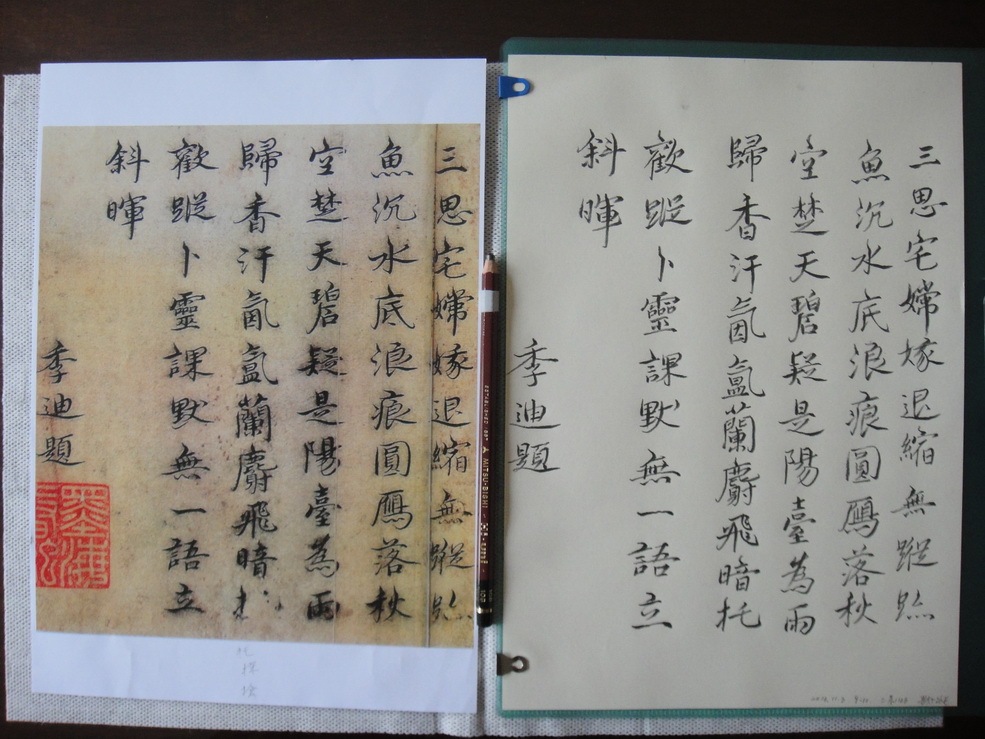 三思宅嫦嫁退縮無蹤跡
魚沉水底浪痕圓鴈落秋
空楚天碧疑是陽臺為雨
歸香汗氤氳蘭麝飛暗
歡蹤卜靈課默無一語立
斜暉
季迪題
MITSU-BISHI
三思宅嫦嫁退縮無蹤跡
魚沉水底浪痕圓鴈落秋
空楚天碧疑是陽臺為雨
歸香汗氤氳蘭麝飛暗托
歡蹤卜靈課默無一語立
斜暉
季迪題